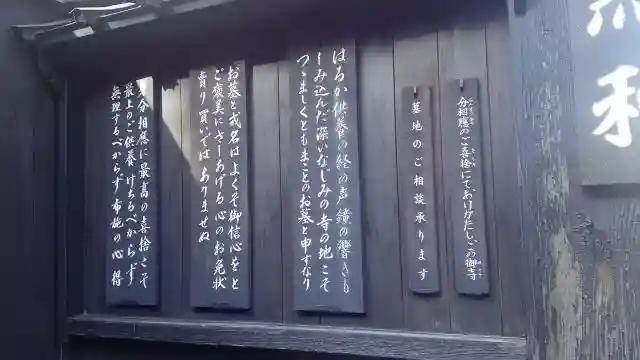 分相應のご喜捨にて、ありがたしこの御寺
墓地のご相談承ります
はるか供養の経の声鐘の響き
しみ込んだ深いなじみの寺の地こそ
つつましくともまことのお墓と申すなり
お墓と戒名はよくぞ御信心をと
ご褒美にさしあげる心のお免状
賣り買いではありませぬ
分相應に最高の喜捨こそ
最上のご供養けちるべからず
無理するべからず布施の心得